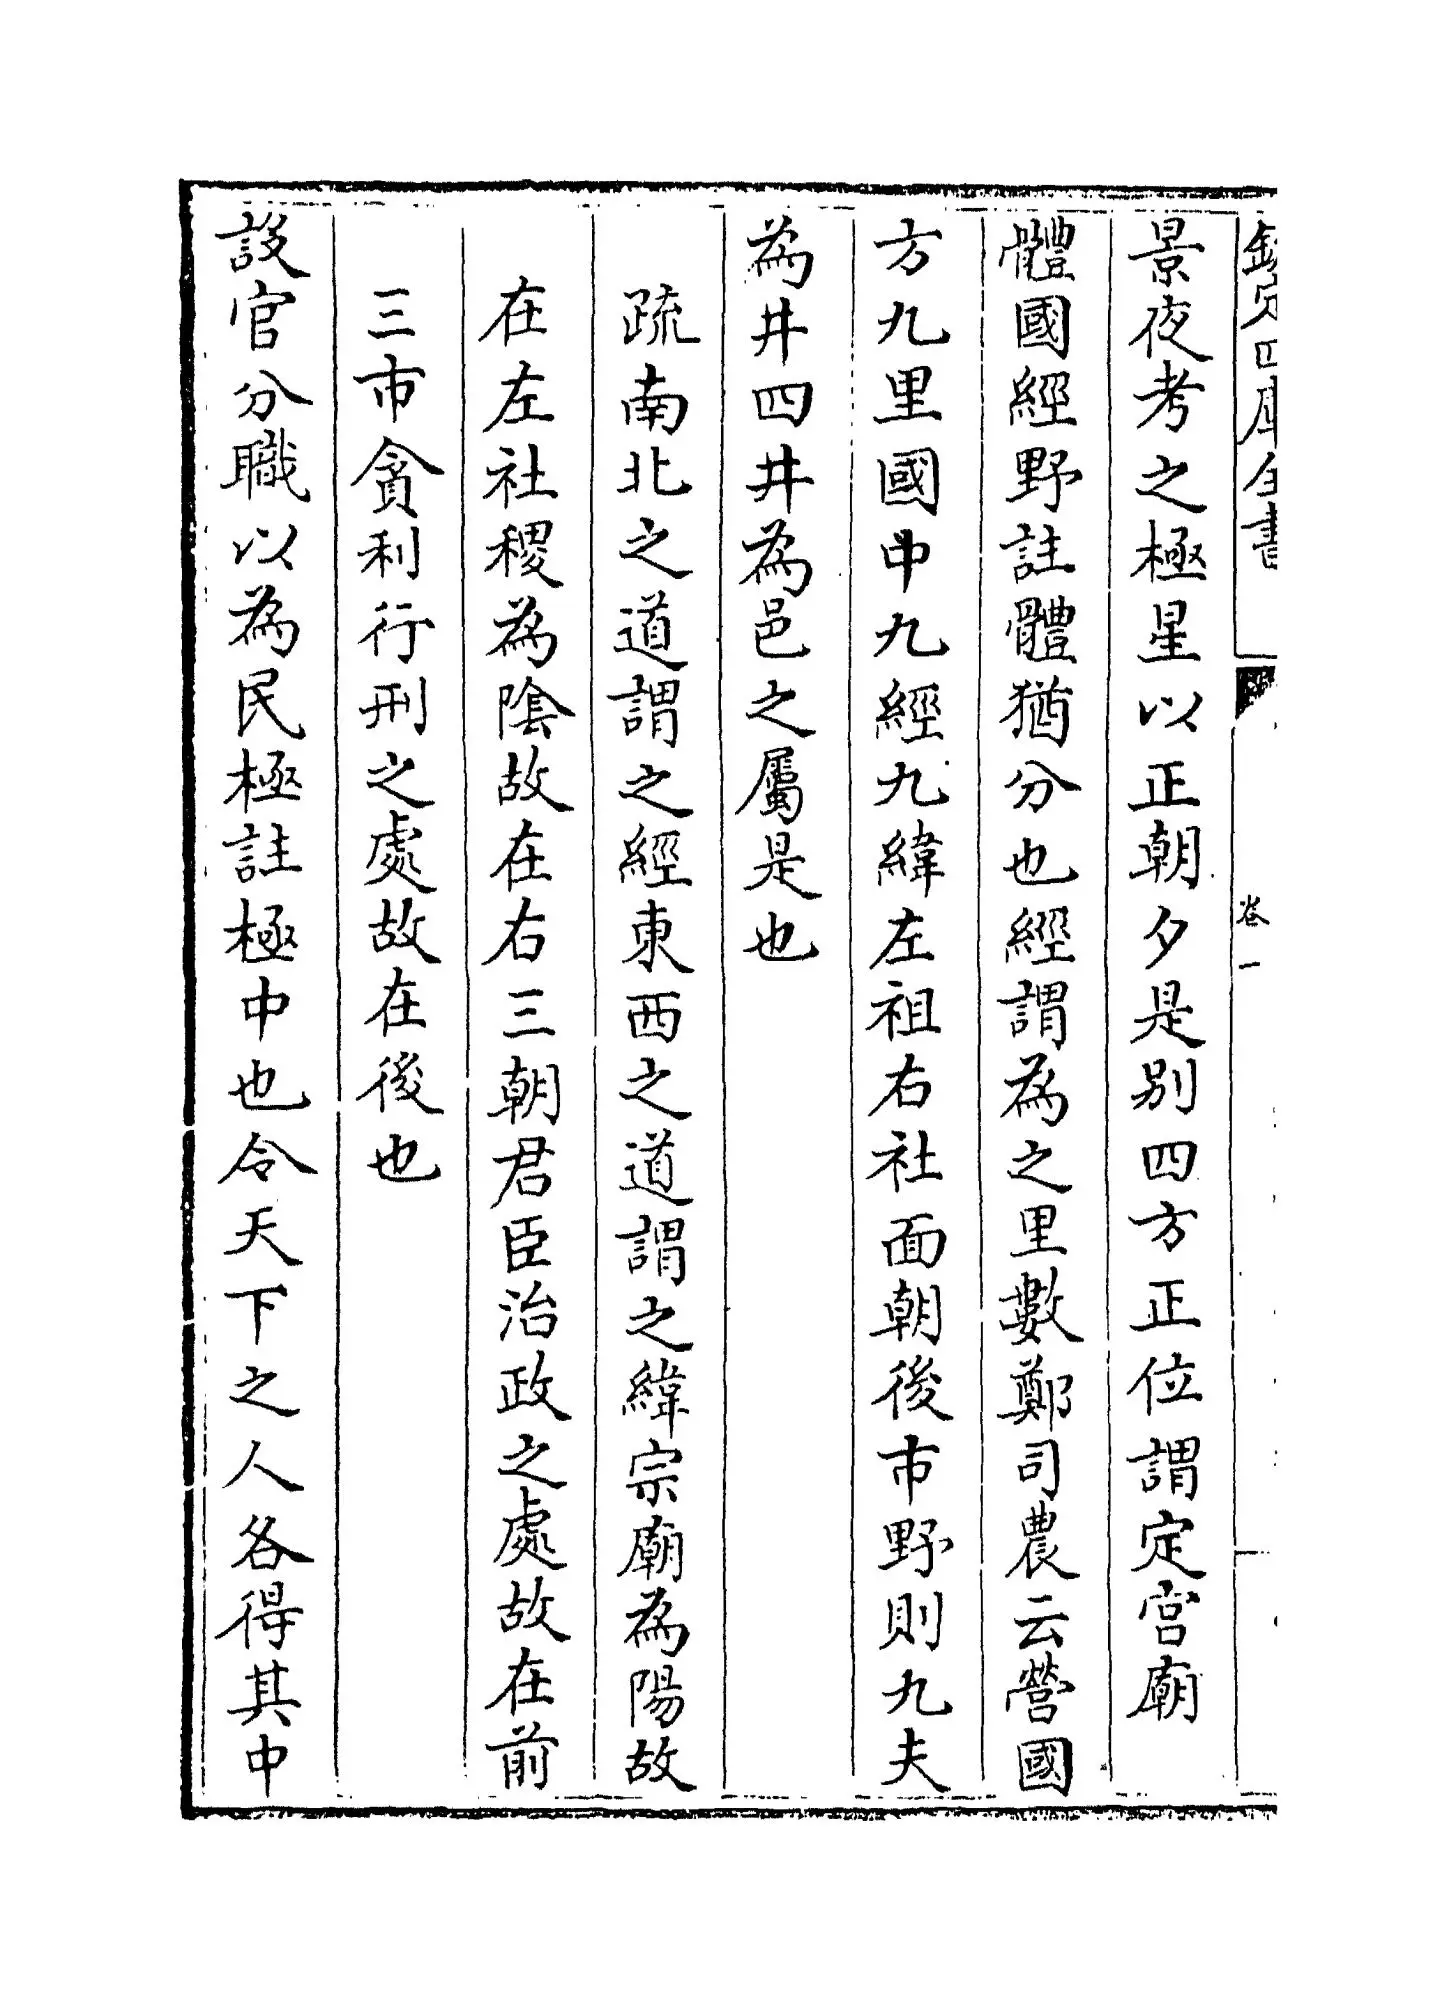 欽定四庫全書
卷一
景夜考之極星以正朝夕是别四方正位謂定宫廟
體國經野註體猶分也經謂為之里數鄭司農云營國
方九里國中九經九緯左祖右社面朝後市野則九夫
為井四井為邑之屬是也
疏南北之道謂之經東西之道謂之緯宗廟為陽故
在左社稷為隂故在右三朝君臣治政之處故在前
三市貪利行刑之處故在後也
設官分職以為民極註極中也令天下之人各得其中